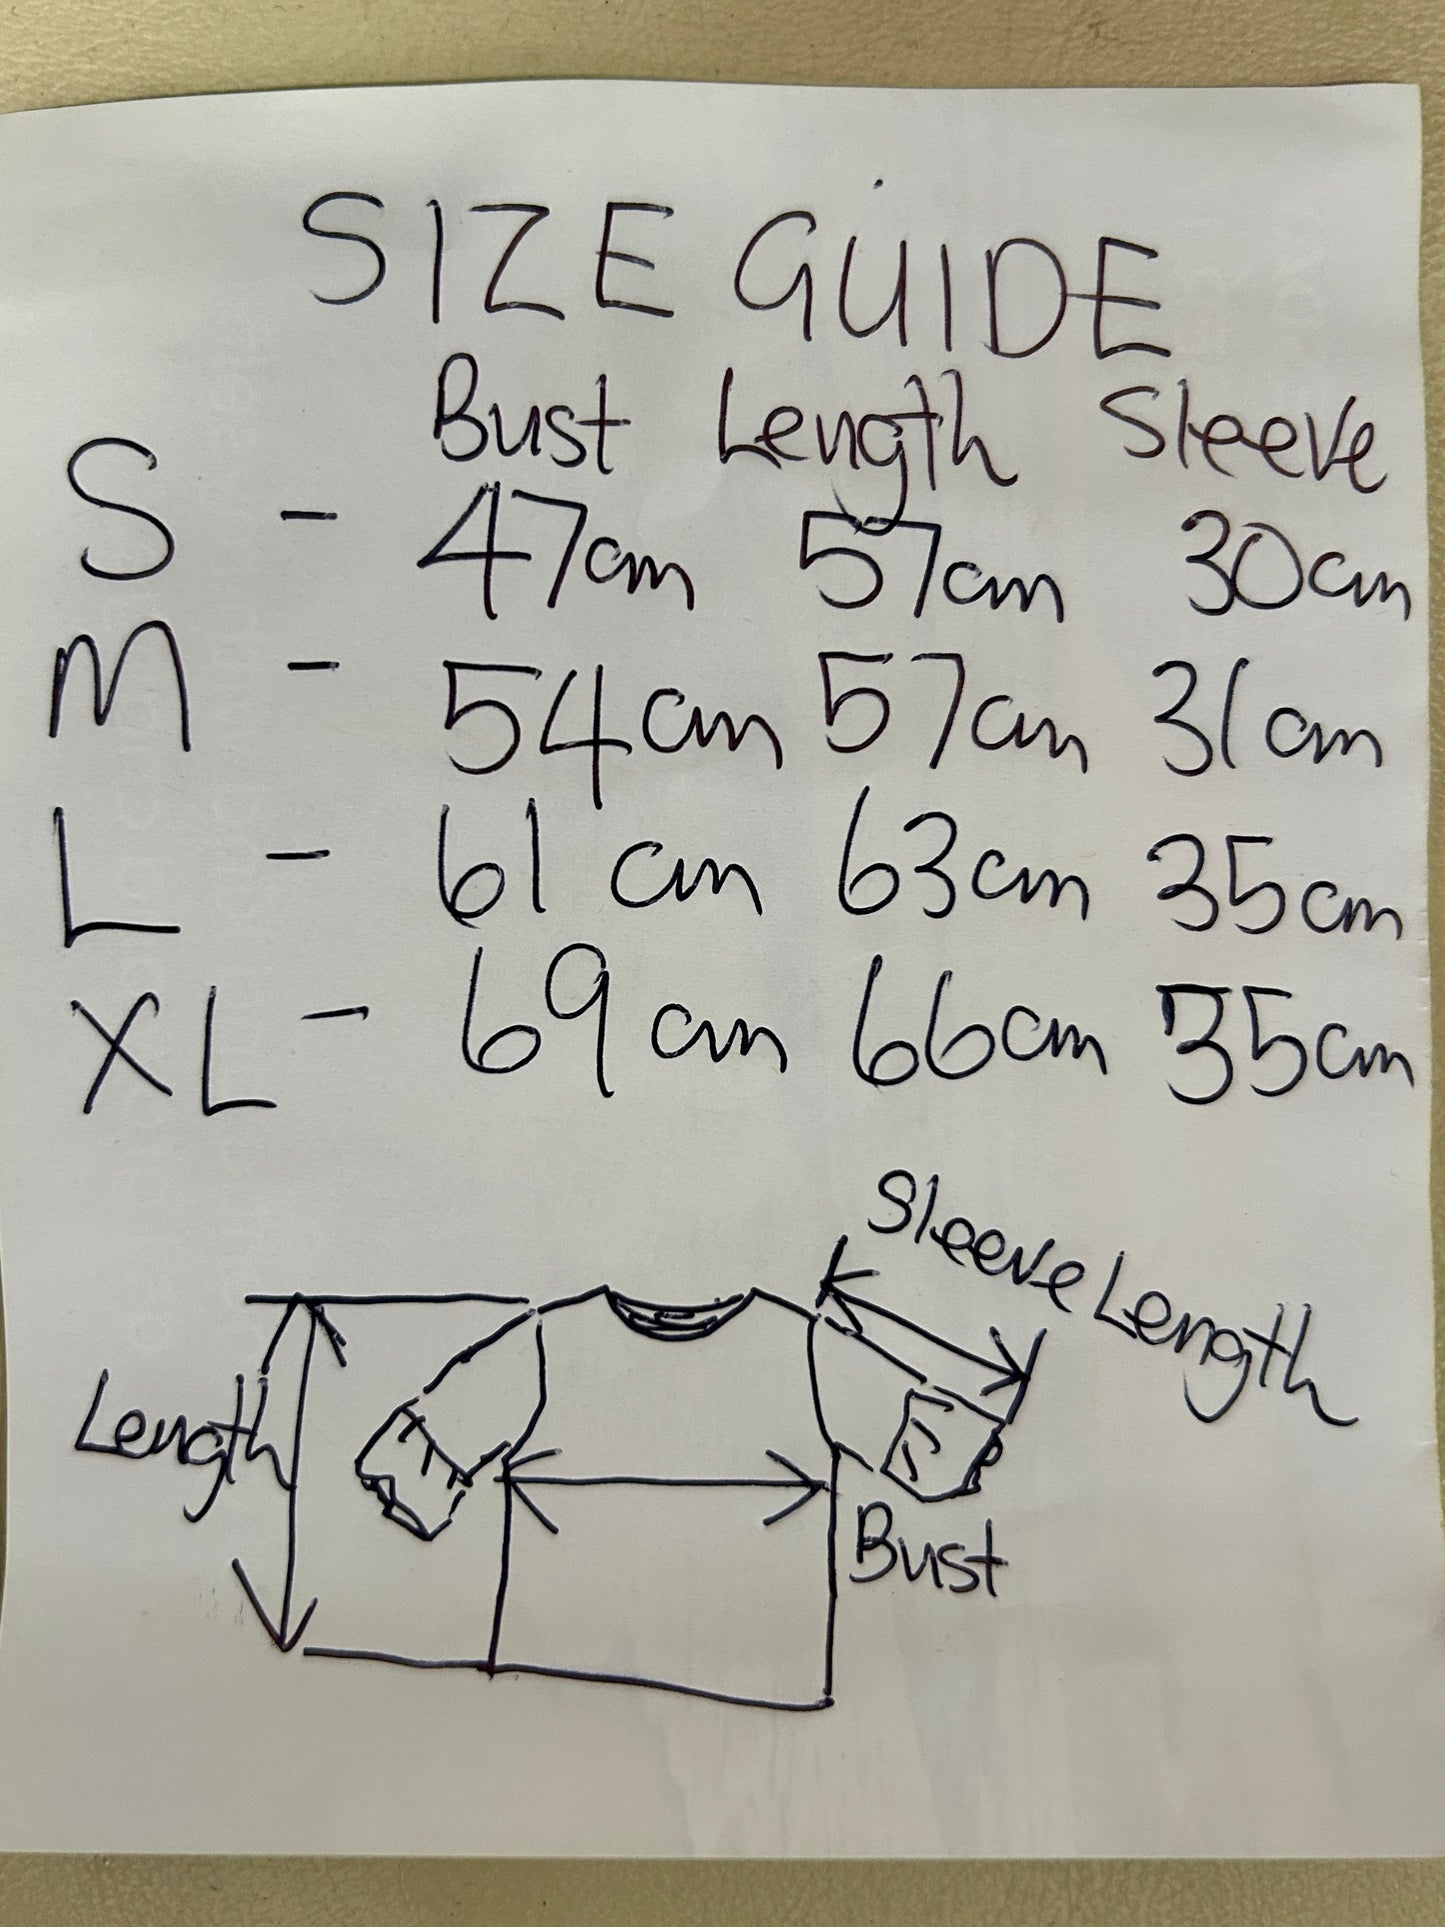 SIZE GUIDE
Bust Length Sleeve
S - 47cm 57cm 30cm
M - 54cm 57cm 31cm
L - 61cm 63cm 35cm
XL - 69cm 66cm 35cm
Sleeve Length
Length
Bust